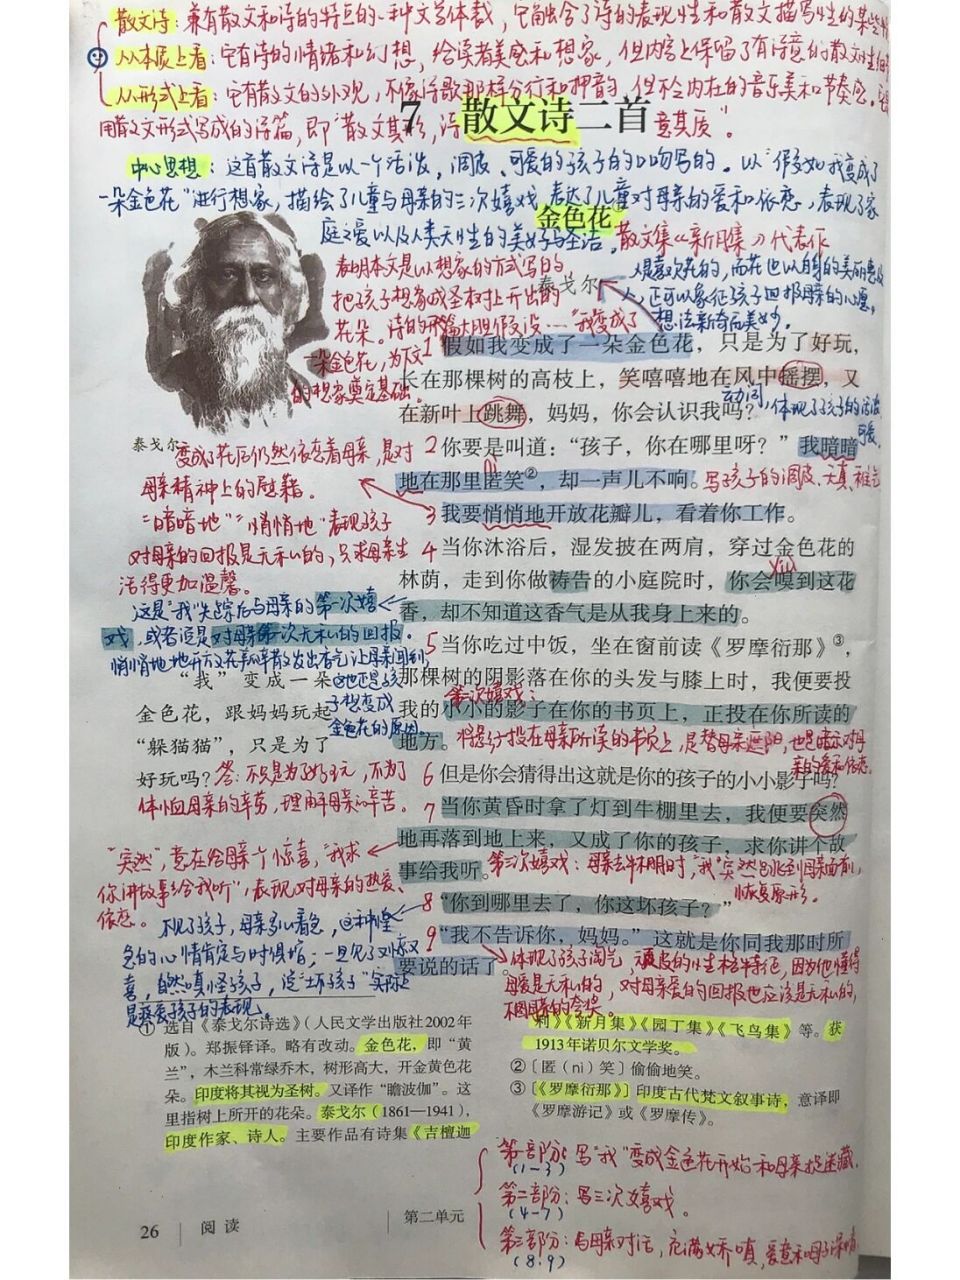 散文诗：兼有散文和诗的特点的一种文学体裁，它融合了诗的表现性和散文描写性的某些特
从本质上看：它有诗的情绪和幻想，给读者美感和想象，但内容上保留了有诗意的散文性细节
从形式上看：它有散文的外观，不像诗歌那样分行和押韵，但不乏内在的音乐美和节奏感。
用散文形式写成的诗篇，即"散文其形，诗意其质"。
7 散文诗二首
中心思想：这首散文诗是以一个活泼，调皮、可爱的孩子的口吻写的。以"假如我变成了
一朵金色花"进行想象，描绘了儿童与母亲的三次嬉戏，表达了儿童对母亲的爱和依恋，表现了家
庭之爱以及人类天性的美好与圣洁。
金色花
散文集《新月集》代表作
泰戈尔
表明本文是以想象的方式写的
把孩子想象成圣树上开出的
花朵。诗的开篇大胆假设……"我变成了
一朵金色花"，为下文
的想象奠定基础。
人是喜欢花的，而花也以自身的美丽惠及
人，还可以象征孩子回报母亲的心愿，
想法新奇而美妙。
1 假如我变成了一朵金色花，只是为了好玩，
长在那棵树的高枝上，笑嘻嘻地在风中摇摆，又
在新叶上跳舞，妈妈，你会认识我吗？
动词，体现了孩子的活泼
可爱。
泰戈尔
2 你要是叫道："孩子，你在哪里呀？"我暗暗
地在那里匿笑②，却一声儿不响。
写孩子的调皮、天真、稚气
3 我要悄悄地开放花瓣儿，看着你工作。
变成了花后仍然依恋着母亲，是对
母亲精神上的慰藉。
"暗暗地""悄悄地"表现孩子
对母亲的回报是无私的，只求母亲生
活得更加温馨。
4 当你沐浴后，湿发披在两肩，穿过金色花的
林荫，走到你做祷告的小庭院时，你会嗅到这花
xiù
香，却不知道这香气是从我身上来的。
这是"我"失踪后与母亲的第一次嬉
戏，或者说是对母亲第一次无私的回报。
悄悄地开放花瓣散发出香气让母亲闻到，
这也正是孩
子想变成
金色花的原因。
5 当你吃过中饭，坐在窗前读《罗摩衍那》③，
那棵树的阴影落在你的头发与膝上时，我便要投
我的小小的影子在你的书页上，正投在你所读的
地方。
第二次嬉戏：
将影子投在母亲所读的书页上，是替母亲遮阳，也是暗示对母
亲的爱和依恋。
"我"变成一朵
金色花，跟妈妈玩起
"躲猫猫"，只是为了
好玩吗？
答：不只是为了好玩，不为了
体恤母亲的辛劳，理解母亲的辛苦。
6 但是你会猜得出这就是你的孩子的小小影子吗？
7 当你黄昏时拿了灯到牛棚里去，我便要突然
地再落到地上来，又成了你的孩子，求你讲个故
事给我听。
第三次嬉戏：母亲去牛棚时，"我"突然跳到母亲面前，
恢复原形。
"突然"，意在给母亲一个惊喜，"我求
你讲故事给我听"，表现对母亲的热爱、
依恋。
8 "你到哪里去了，你这坏孩子？"
9 "我不告诉你，妈妈。"这就是你同我那时所
要说的话了。
不见了孩子，母亲多么着急，这种焦
急的心情肯定与时俱增；一旦见了又惊又
喜，自然嗔怪孩子，说"坏孩子"实际上
是疼爱孩子的表现。
体现了孩子淘气，顽皮的性格特征，因为他懂得
母爱是无私的，对母亲爱的回报也应该是无私的，
不图母亲的夸奖。
① 选自《泰戈尔诗选》（人民文学出版社2002年
版）。郑振铎译。略有改动。金色花，即"黄
兰"，木兰科常绿乔木，树形高大，开金黄色花
朵。印度将其视为圣树。又译作"瞻波伽"。这
里指树上所开的花朵。泰戈尔（1861—1941），
印度作家、诗人。主要作品有诗集《吉檀迦
利》《新月集》《园丁集》《飞鸟集》等。获
1913年诺贝尔文学奖。
②〔匿（nì）笑〕偷偷地笑。
③〔《罗摩衍那》〕印度古代梵文叙事诗，意译即
《罗摩游记》或《罗摩传》。
第一部分：写"我"变成金色花开始和母亲捉迷藏.
(1-3)
第二部分：写三次嬉戏。
(4-7)
第三部分：与母亲对话，充满娇嗔，爱意和
(8.9)
26 阅读
第二单元